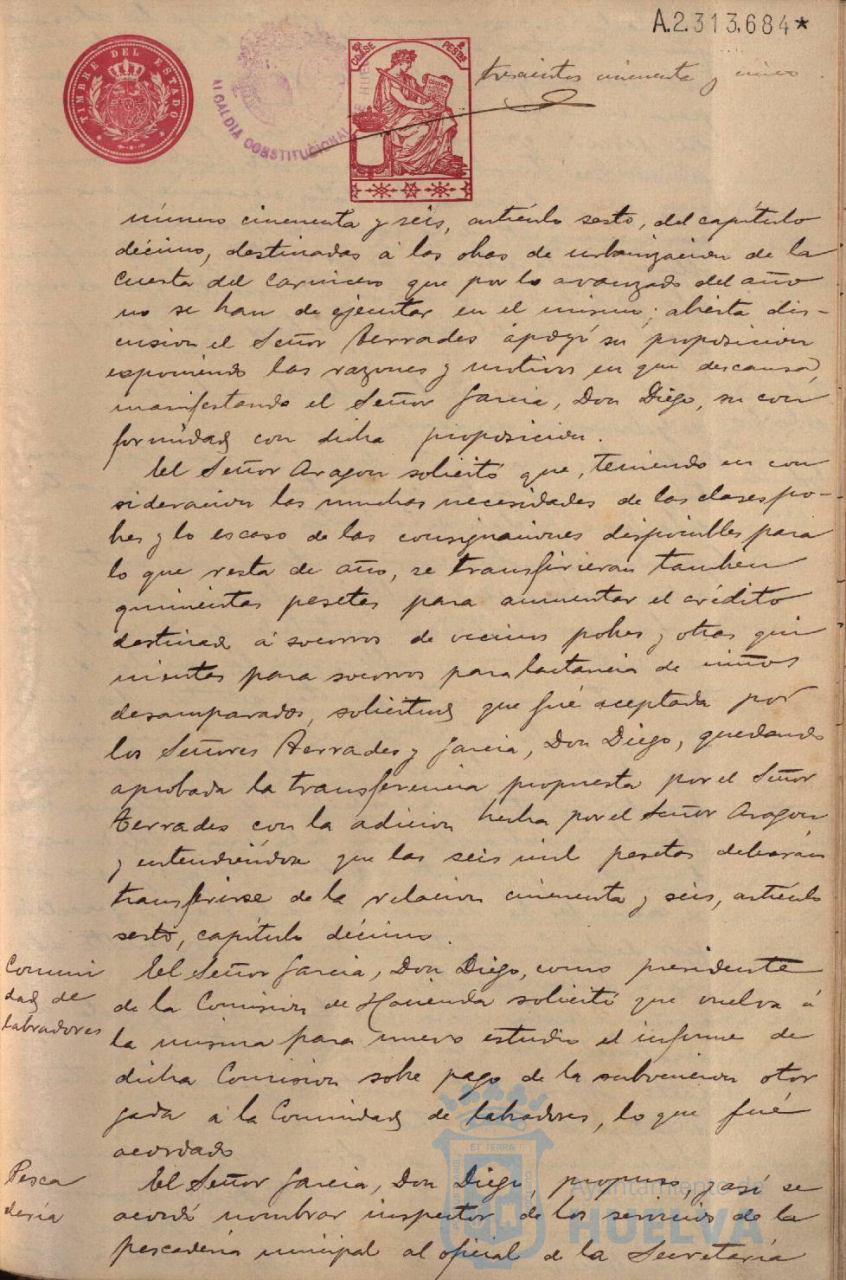 A.2.313.684*
TIMBRE DEL ESTADO
ALCALDIA CONSTITUCIONAL DE HUELVA
CLASE PESETA
trescientos cincuenta y cinco
número cincuenta y seis, artículo sesto, del capítulo
décimo, destinadas á las obras de urbanización de la
Cuesta del Carnicero que por lo avanzado del año
no se han de ejecutar en el mismo; abierta dis-
cusion el Señor Terrades apoyó su proposicion
esponiendo las razones y motivos en que descansa,
manifestando el Señor Garcia, Don Diego, su con
formidad con dicha proposicion.
El Señor Aragon solicitó que, teniendo en con
sideracion las muchas necesidades de las clases po-
bres y lo escaso de las consignaciones disponibles para
lo que resta de año, se transfirieran tambien
quinientas pesetas para aumentar el crédito
destinado á socorros de vecinos pobres y otras qui
nientas para socorros para lactancia de niños
desamparados, solicitud que fué aceptada por
los Señores Terrades y Garcia, Don Diego, quedando
aprobada la transferencia propuesta por el Señor
Terrades con la adicion hecha por el Señor Aragon
y entendiéndose que las seis mil pesetas deberán
transferirse de la relacion cincuenta y seis, artículo
sesto, capítulo décimo.
Comuni
dad de
Labradores
El Señor Garcia, Don Diego, como presidente
de la Comision de Hacienda solicitó que vuelva á
la misma para nuevo estudio el informe de
dicha Comision sobre pago de la subvencion otor
gada á la Comunidad de Labradores, lo que fué
acordado
Pesca
deria
El Señor Garcia, Don Diego, propuso, y así se
acordó nombrar inspector de los servicios de la
pescadería municipal al oficial de la Secretaría
Ayuntamiento de
HUELVA